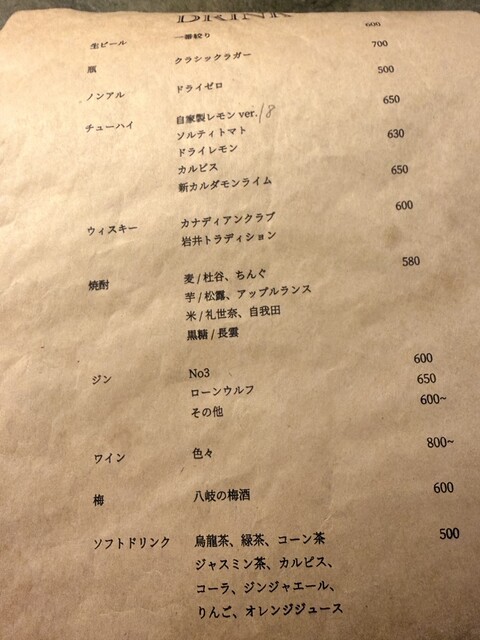 DRINK
生ビール 一番絞り 600
瓶 クラシックラガー 700
ノンアル ドライゼロ 500
チューハイ 自家製レモン ver.18 650
ソルティトマト
ドライレモン 630
カルピス
新カルダモンライム 650
ウィスキー カナディアンクラブ 600
岩井トラディション
焼酎 麦/杜谷、ちんぐ 580
芋/松露、アップルランス
米/礼世奈、自我田
黒糖/長雲
ジン No3 600
ローンウルフ 650
その他 600~
ワイン 色々 800~
梅 八岐の梅酒 600
ソフトドリンク 烏龍茶、緑茶、コーン茶 500
ジャスミン茶、カルピス、
コーラ、ジンジャエール、
りんご、オレンジジュース